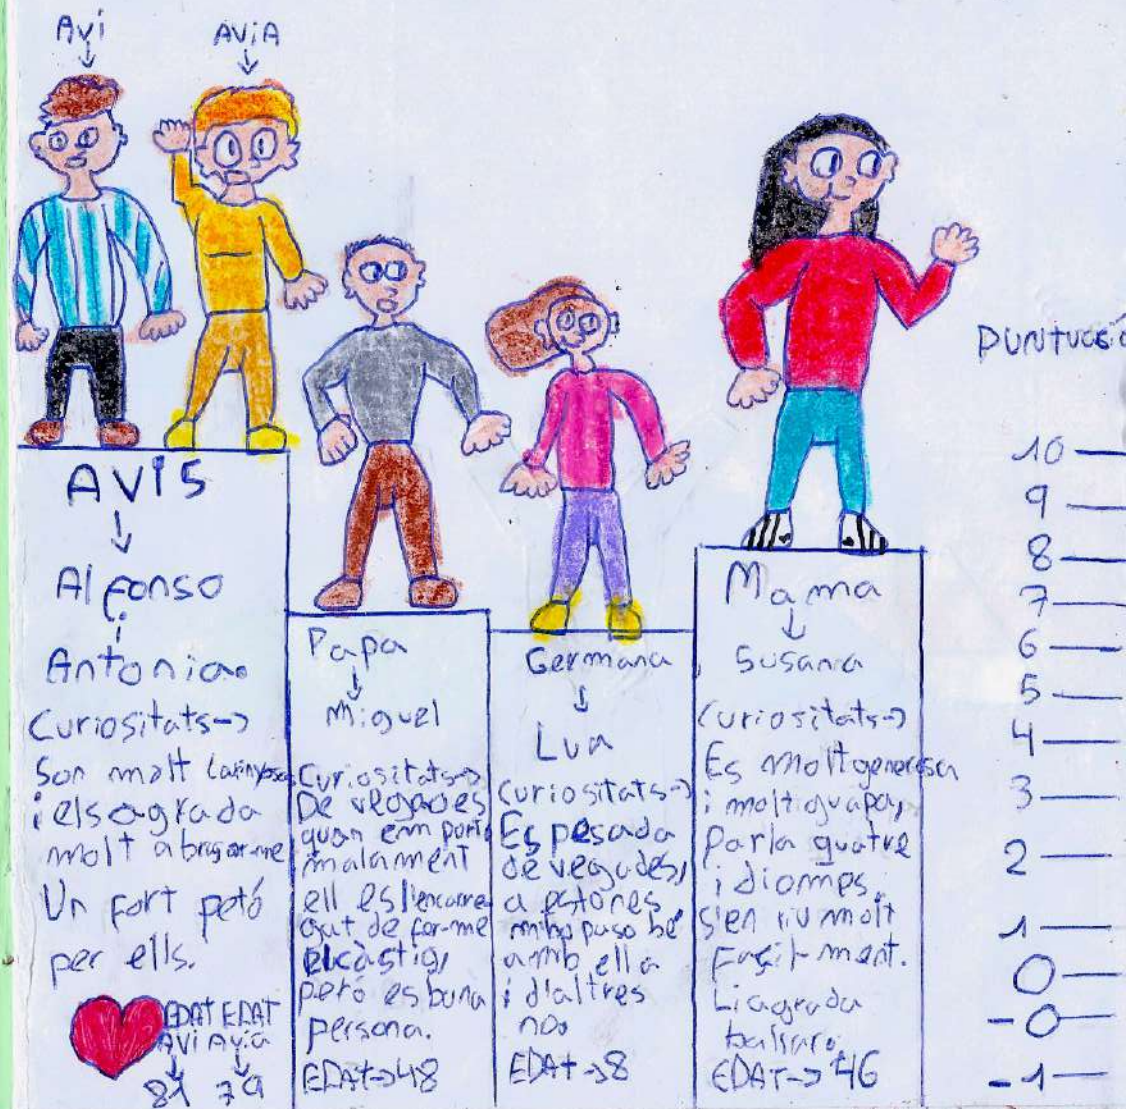 Avi
AViA
AVIS
Alfonso
i
Antonia.
Curiositats->
Son molt carinyosos
i els agrada
molt abraçar-me
Un fort petó
per ells.
EDAT EDAT
AVi Avia
81 79
Papa
Miguel
Curiositats->
De vegades
quan em porto
malament
ell es l'encarre
gat de fer-me
el càstig,
però es bona
persona.
EDAT->48
Germana
Lua
Curiositats->
Es pesada
de vegades,
a estones
m'ho paso bé
amb ella
i d'altres
no.
EDAT->8
Mama
Susana
Curiositats->
Es molt generosa
i molt guapa,
Parla quatre
idiomes.
s'en riu molt
Facil-ment.
Li agrada
ballar.
EDAT->46
PUNTUACIÓ
10
9
8
7
6
5
4
3
2
1
0
-0
-1